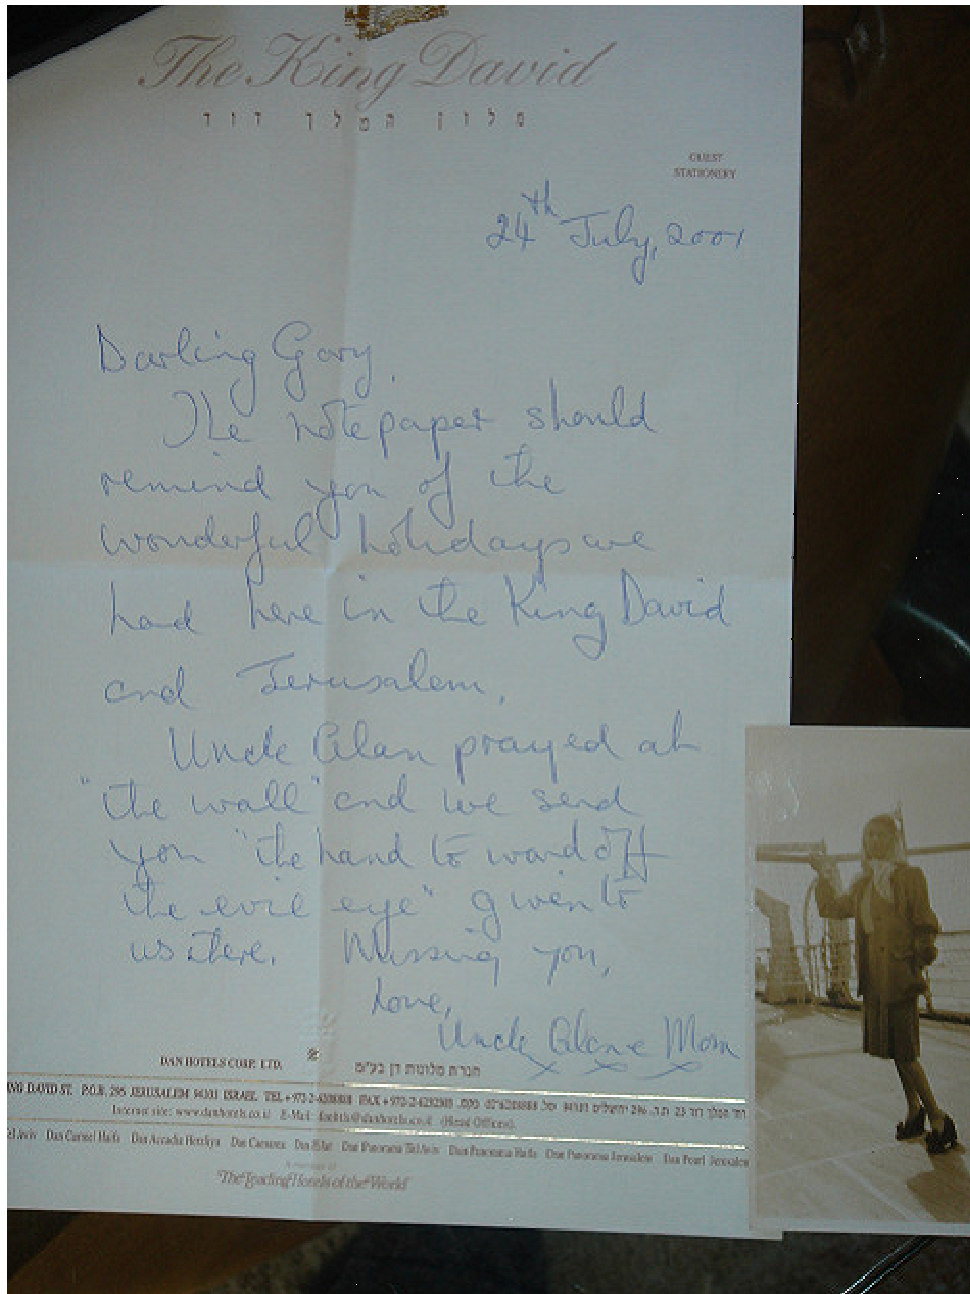 The King David
מלון המלך דוד
GUEST
STATIONERY
24th July, 2001
Darling Gary,
The notepaper should
remind you of the
wonderful holidays we
had here in the King David
and Jerusalem.
Uncle Alan prayed at
"the wall" and we send
you "the hand to ward off
the evil eye" given to
us there. Missing you,
Love,
Uncle Alan & Mom
x x x
DAN HOTELS CORP. LTD. חברת מלונות דן בע״מ
KING DAVID ST. P.O.B. JERUSALEM ISRAEL TEL FAX
Internet site: www.danhotels.co.il E-Mail: (Head Offices).
Tel Aviv Dan Carmel Haifa Dan Accadia Herzliya Dan Caesarea Dan Eilat Dan Panorama Tel Aviv Dan Panorama Haifa Dan Panorama Jerusalem Dan Pearl Jerusalem
A member of
The Leading Hotels of the World